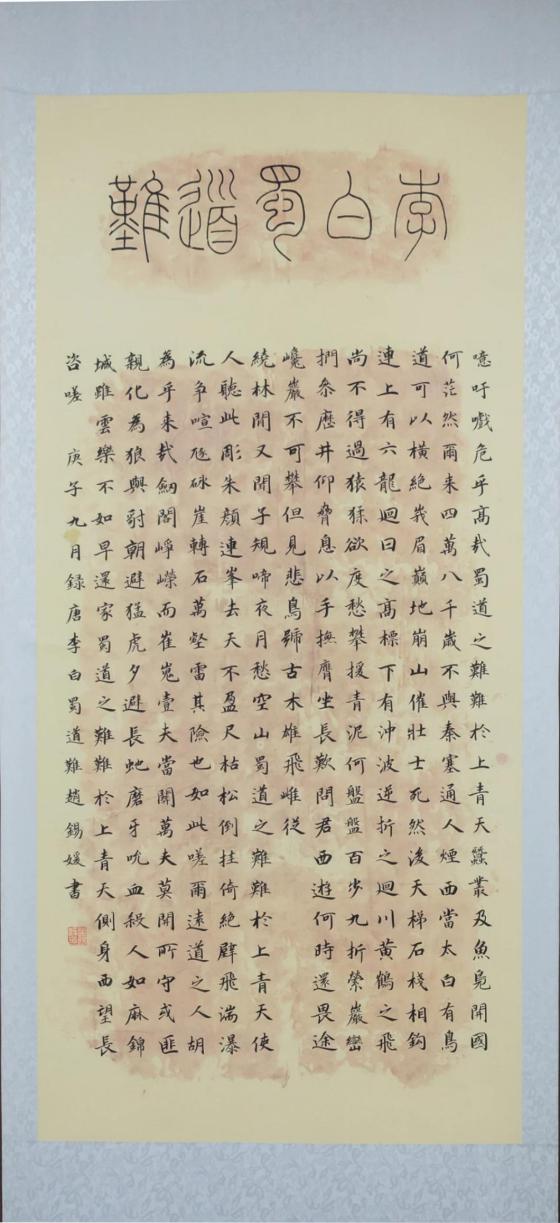 李白蜀道難
噫吁戲危乎高哉蜀道之難難於上青天蠶叢及魚鳧開國
何茫然爾来四萬八千歲不與秦塞通人煙西當太白有鳥
道可以橫絕峩眉巔地崩山催壯士死然後天梯石棧相鈎
連上有六龍迴日之高標下有沖波逆折之迴川黃鶴之飛
尚不得過猿猱欲度愁攀援青泥何盤盤百步九折縈巖巒
捫叅歷井仰脅息以手撫膺坐長歎問君西遊何時還畏途
巉巖不可攀但見悲鳥號古木雄飛雌從
繞林間又聞子規啼夜月愁空山蜀道之難難於上青天使
人聽此彫朱顏連峯去天不盈尺枯松倒挂倚絕壁飛湍瀑
流争喧豗砯崖轉石萬壑雷其險也如此嗟爾遠道之人胡
為乎来哉劒閣崢嶸而崔嵬壹夫當關萬夫莫開所守或匪
親化為狼與豺朝避猛虎夕避長虵磨牙吮血殺人如麻錦
城雖雲樂不如早還家蜀道之難難於上青天側身西望長
咨嗟 庚子九月録唐李白蜀道難趙錫媛書